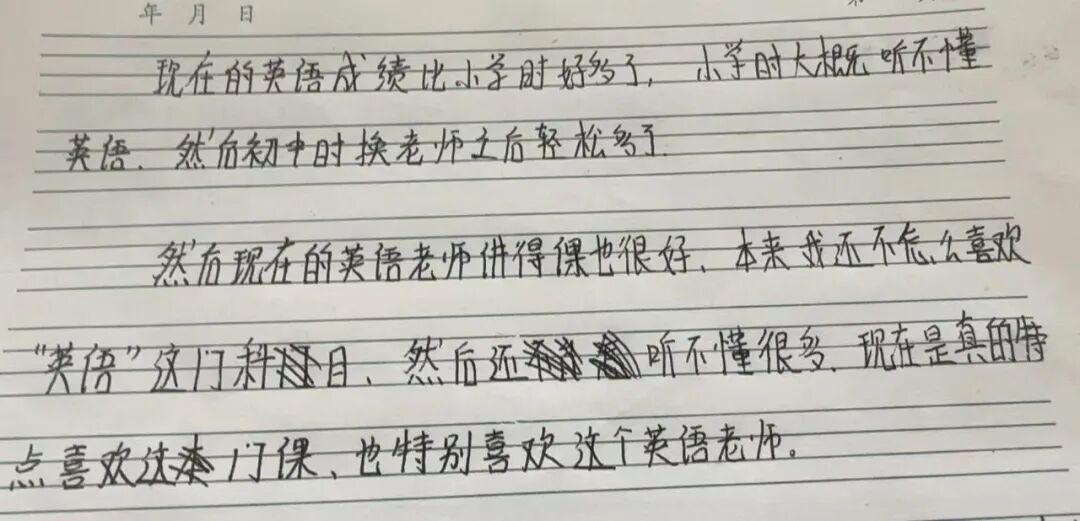 年 月 日
现在的英语成绩比小学时好多了，小学时大概听不懂
英语、然后初中时换老师之后轻松多了.
然后现在的英语老师讲得课也很好、本来我还不怎么喜欢
“英语”这门科目、然后还听不懂很多、现在是真的特
点喜欢这门课、也特别喜欢这个英语老师。